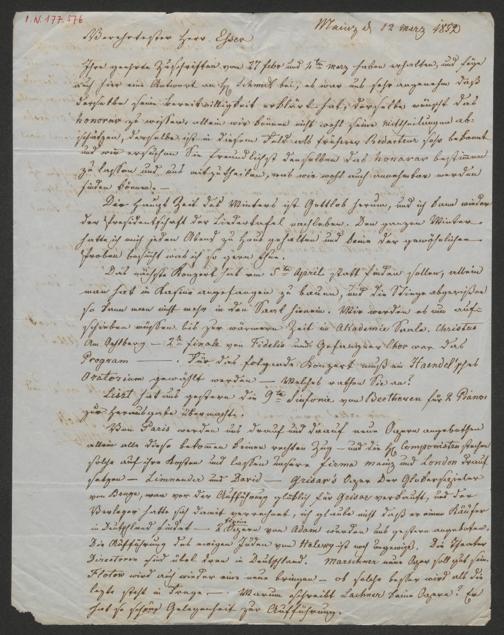 I.N. 177.576
Mainz d 12 merz 1852
Verehrtester Herr Esser
Ihre geehrte Zuschriften vom 27 febr und 4ten merz haben erhalten, und lege
auch hier eine Antwort an H. Schmidt bei, es war uns sehr angenehm daß
derselbe seine Bereitwilligkeit erklärt hat, derselbe wünscht das
honorar zu wissen, allein wir können nicht wohl seine Mittheilungen ab-
schätzen, derselbe ist in diesem Feld als früherer Redacteur sehr bekannt
und wir ersuchen Sie freundlichst denselben das honorar bestimmen
zu lassen und uns mitzutheilen, was wir wohl auch annehmbar werden
finden können. —
Die Haupt Zeit des Winters ist Gottlob herum, und ich kann wieder
der Präsidentschaft der Liedertafel nachleben. Den ganzen Winter
hatte ich mich jeden Abend zu Haus gehalten und keine der gewöhnlichen
Proben besucht was ich so gern thue.
Das nächste Konzert hat am 5ten April statt finden sollen, allein
man hat im Kasino angefangen zu bauen, und die Stiege abgerissen
so kann man nicht mehr in den Saal hinein. Wir werden es nun auf-
schieben müssen bis zur wärmern Zeit in Akademie Saale. Christus
am Oehlberg — 2tes Finale von Fidelio und Gefangenen Chor war das
Program — . Für das folgende Konzert muß ein Haendel'sches
Oratorium gewählt werden — Welches rathen Sie an?
Liszt hat uns gestern die 9te Sinfonie von Beethoven für 2 Pianos
zur Herausgabe übermacht.
Von Paris werden uns drauf und drauf neue Opern angebothen
allein alle diese bekommen keinen rechten Zug — und die H. Componisten stechen
solche auf ihre Kosten und lassen unsere firma mainz und London drauf
setzen — Limnander und David — Grisar's Oper
man vor der Aufführung glücklich für Grisar verkauft, und der
Verleger hatte sich damit verrechnet, ich glaube nicht daß er einen Käufer
in Deutschland findet — 2 Opern von Adam wurden uns gestern angeboten.
Die Aufführung des ewigen Juden von Halevy ist noch ungewiß. Die Theater
Directoren sind übel dran in Deutschland. Marschner neue Oper soll gut sein
Flotow wird auch wieder eine neue bringen — ob solche besser wird als die
letzte steht in Frage. — Warum schreibt Lachner keine Oper? Er
hat so schöne Gelegenheit zur Aufführung.